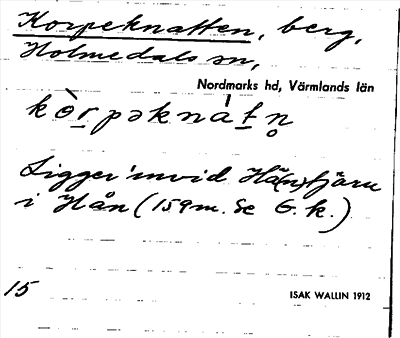 Korpeknatten, berg,
Holmedals sn,
Nordmarks hd, Värmlands län
kò̀r̠pəknát̠n̥
Ligger invid Hå(n)tjärn
i Hån (159 m. Se G. k.)
15 ISAK WALLIN 1912